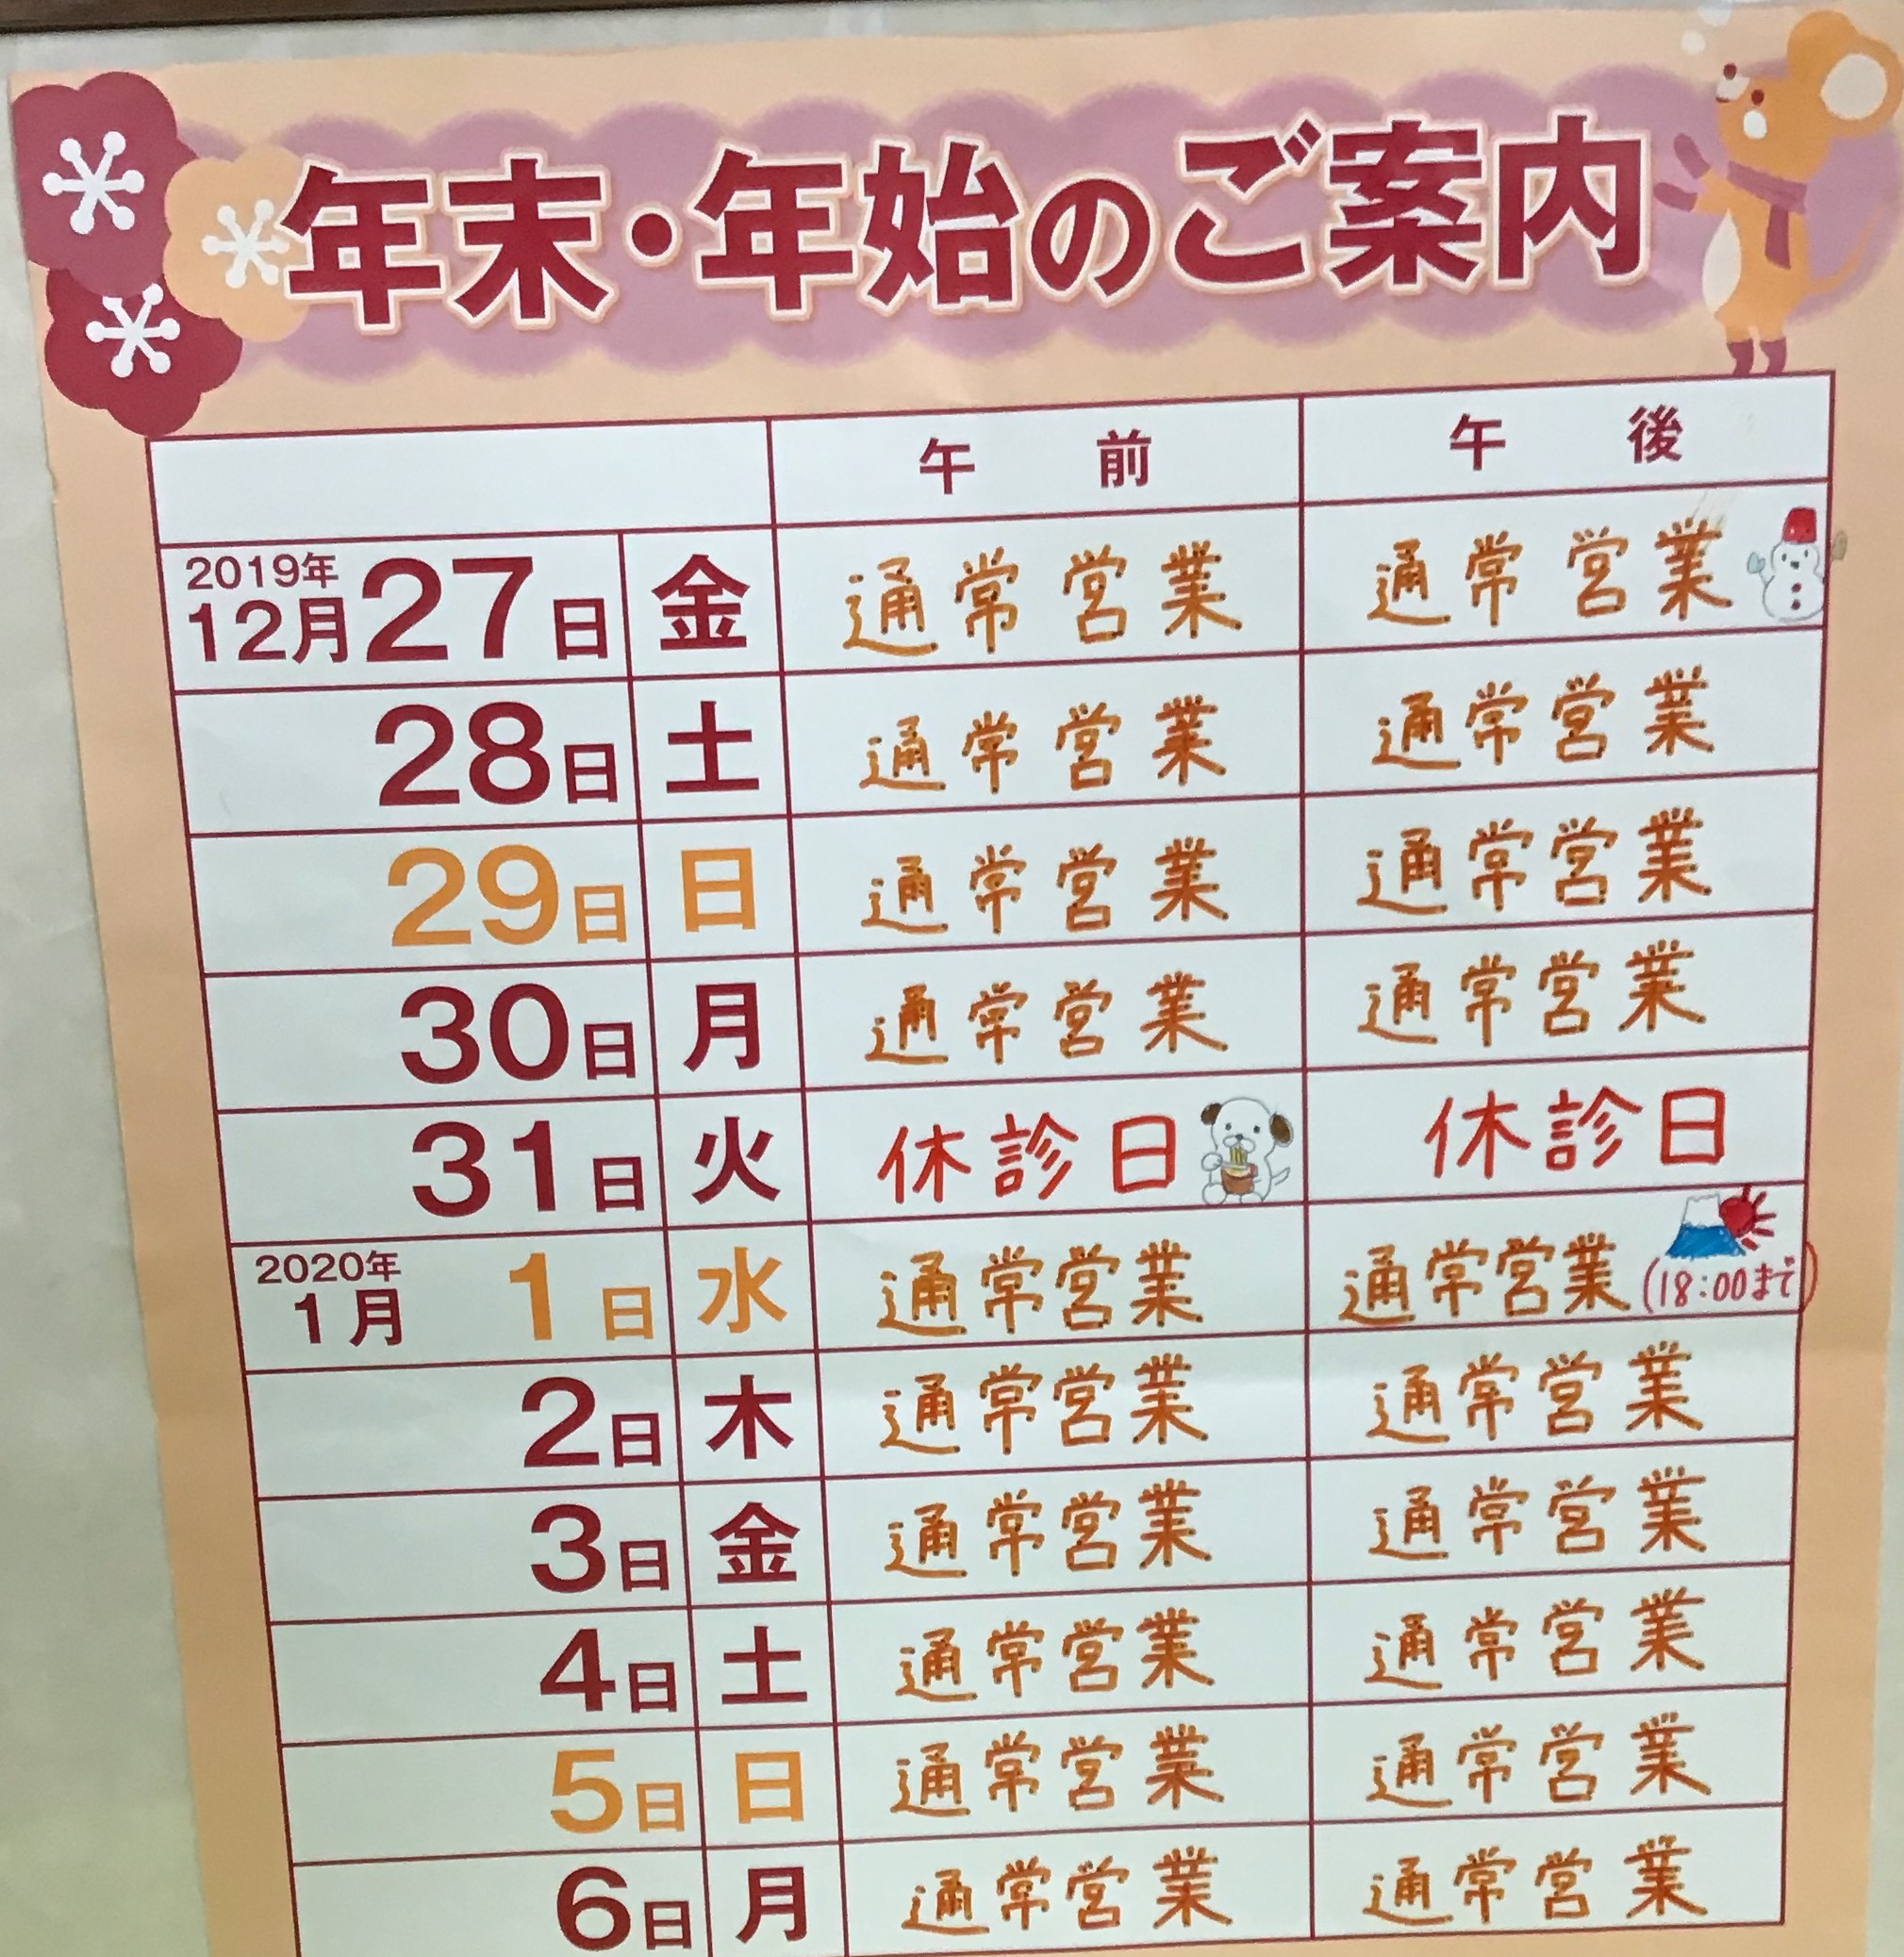 年末・年始のご案内
午前 午後
2019年
12月27日 金 通常営業 通常営業
28日 土 通常営業 通常営業
29日 日 通常営業 通常営業
30日 月 通常営業 通常営業
31日 火 休診日 休診日
2020年
1月 1日 水 通常営業 通常営業(18:00まで)
2日 木 通常営業 通常営業
3日 金 通常営業 通常営業
4日 土 通常営業 通常営業
5日 日 通常営業 通常営業
6日 月 通常営業 通常営業